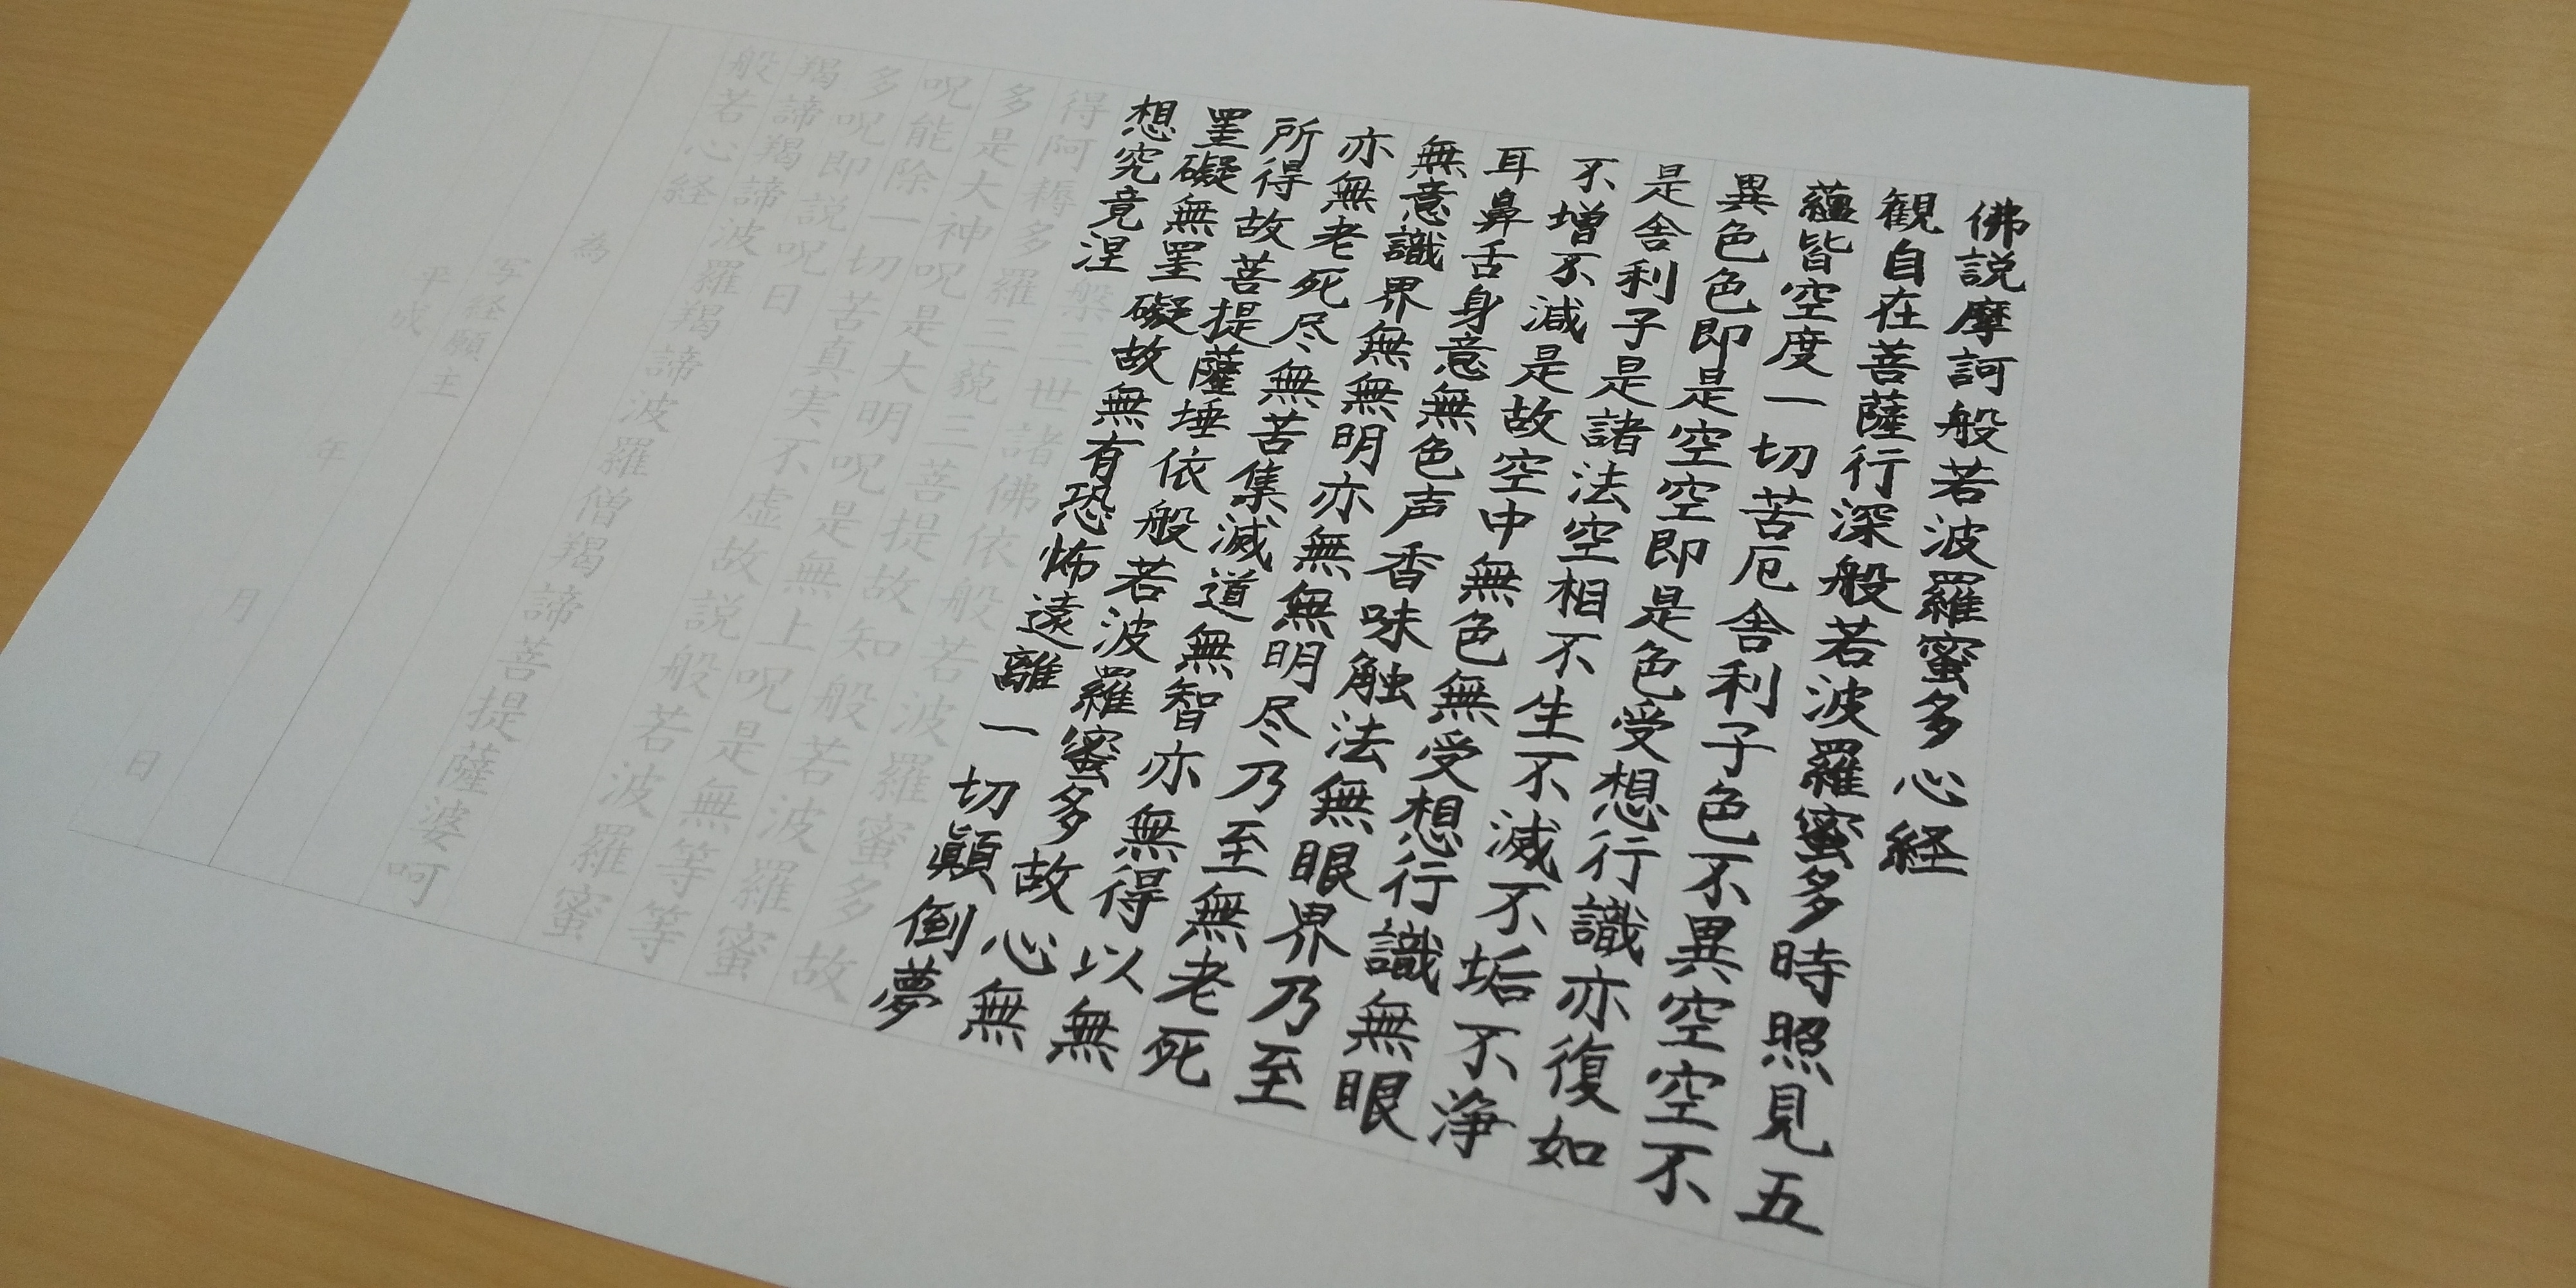 佛説摩訶般若波羅蜜多心経
観自在菩薩行深般若波羅蜜多時照見五
蘊皆空度一切苦厄舎利子色不異空空不
異色色即是空空即是色受想行識亦復如
是舎利子是諸法空相不生不滅不垢不浄
不増不減是故空中無色無受想行識無眼
耳鼻舌身意無色声香味触法無眼界乃至
無意識界無無明亦無無明尽乃至無老死
亦無老死尽無苦集滅道無智亦無得以無
所得故菩提薩埵依般若波羅蜜多故心無
罣礙無罣礙故無有恐怖遠離一切顛倒夢
想究竟涅槃三世諸佛依般若波羅蜜多故
得阿耨多羅三藐三菩提故知般若波羅蜜
多是大神呪是大明呪是無上呪是無等等
呪能除一切苦真実不虚故説般若波羅蜜
多呪即説呪曰
羯諦羯諦波羅羯諦波羅僧羯諦菩提薩婆呵
般若心経
為
写経願主
平成 年 月 日